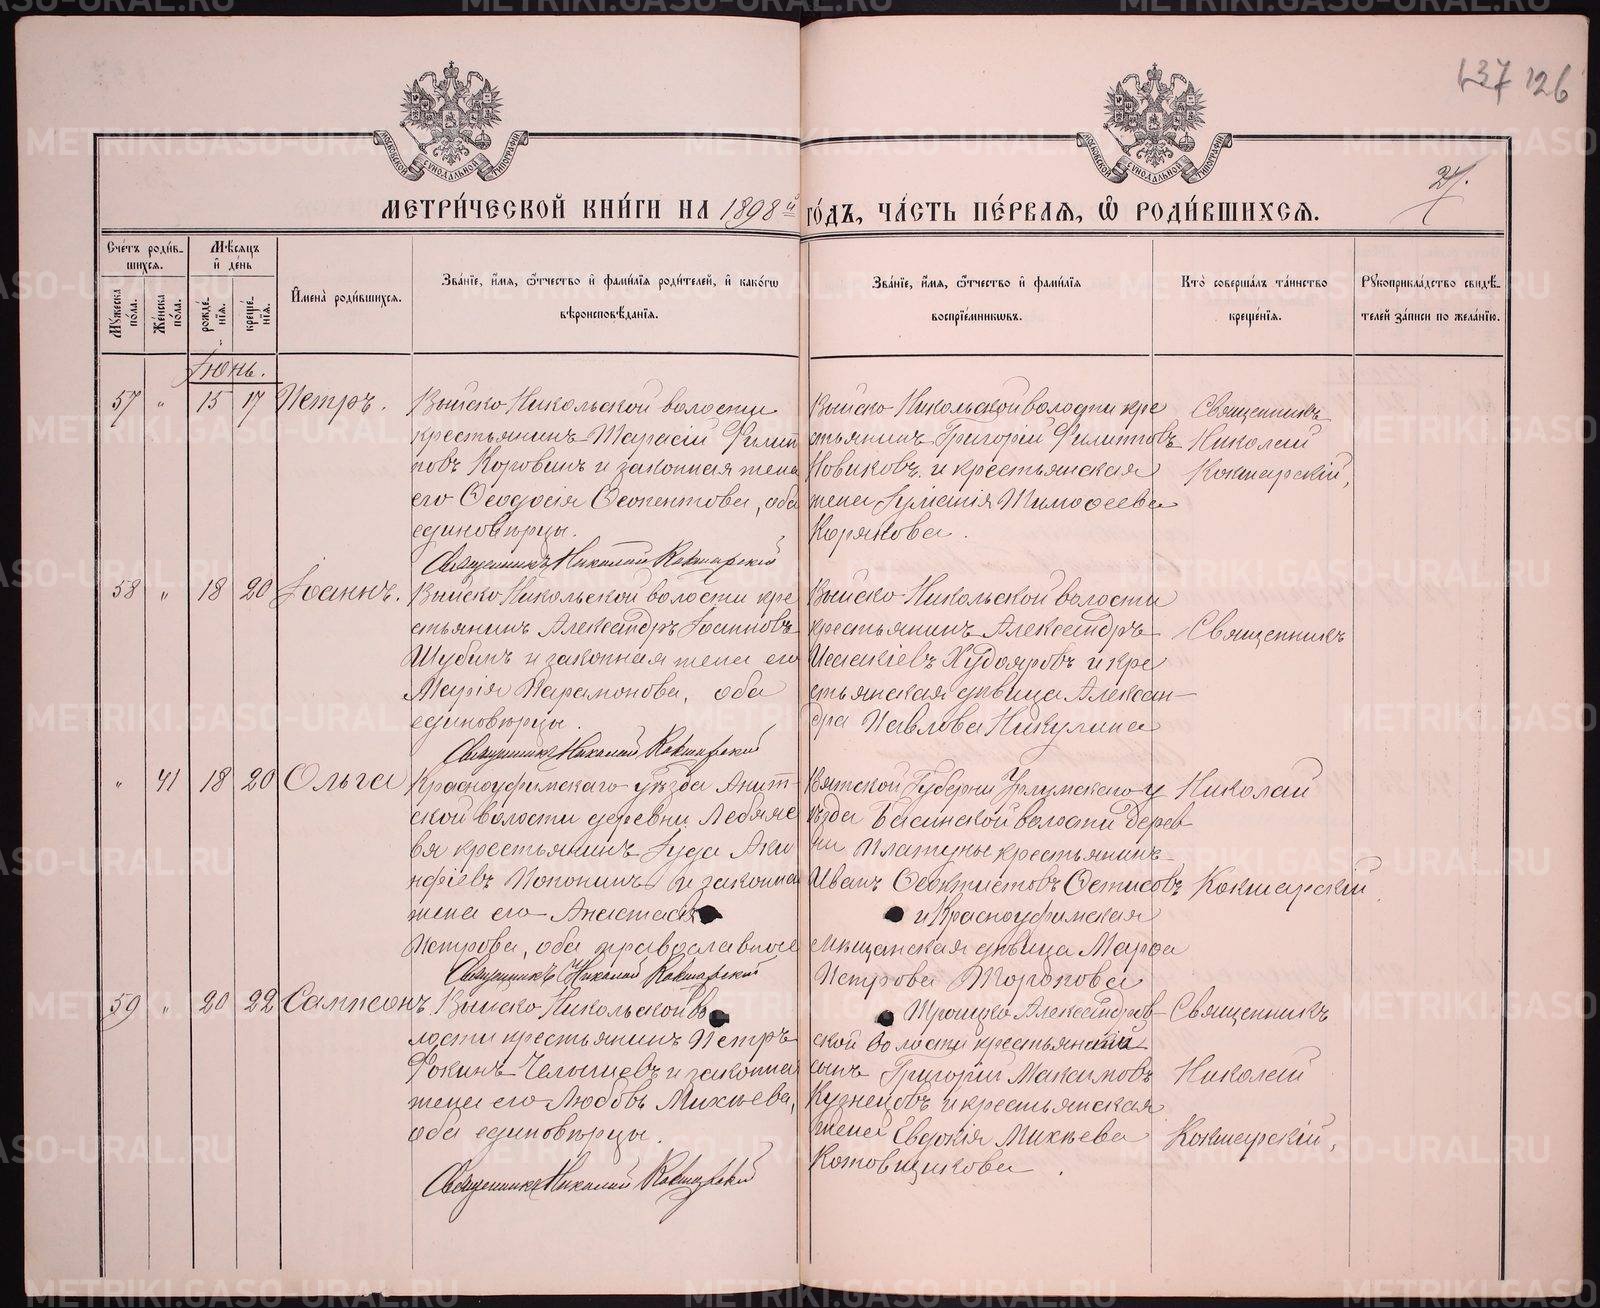 137 126
27.
МЕТРИ́ЧЕСКОЙ КНИ́ГИ НА 1898й ГО́ДЪ, ЧА́СТЬ ПЕ́РВАЯ, Ѽ РОДИ́ВШИХСЯ.
Сче́тъ роди́в-
шихся.
Му́жеска по́ла.
Же́нска по́ла.
Мѣ́сяцъ
и҆ де́нь
рожде́-
нїя.
креще́-
нїя.
И҆мена̀ роди́вшихся.
Зва́нїе, и҆́мя, ѻ҆́тчество и҆ фами́лїя роди́телей, и҆ како́гѡ
вѣроисповѣ́данїя.
Зва́нїе, и҆́мя, ѻ҆́тчество и҆ фами́лїя
воспрїе́мниковъ.
Кто̀ соверша́лъ та́инство
креще́нїя.
Рꙋкоприкла́дство свидѣ́-
телей за́писи по жела́нїю.
Іюнь.
57 " 15 17 Петръ.
Выйско-Никольской волости
крестьянинъ Тарасій Филип
повъ Коровинъ и законная жена
его Ѳеодосія Ѳеопентова, оба
единовѣрцы.
Священникъ Николай Кокшарскій
Выйско-Никольской волости кре
стьянинъ Григорій Филипповъ
Новиковъ и крестьянская
жена Іуліанія Тимоѳеева
Корякова.
Священникъ
Николай
Кокшарскій,
58 " 18 20 Іоаннъ.
Выйско-Никольской волости кре
стьянинъ Александръ Іоанновъ
Шубинъ и законная жена его
Марія Парамонова, оба
единовѣрцы.
Священникъ Николай Кокшарскій
Выйско-Никольской волости
крестьянинъ Александръ
Исаакіевъ Худояровъ и кре
стьянская дѣвица Алексан-
дра Павлова Никулина
Священникъ
" 41 18 20 Ольга
Красноуфимскаго уѣзда
ской волости деревни
крестьянинъ Іуда Аки
нфіевъ Попонинъ и законная
жена его Анастасія
Петрова, оба православные
Священникъ Николай Кокшарскій
Вятской Губерніи Уржумскаго у
ѣзда волости дерев
ни крестьянинъ
Иванъ Ѳеоктистовъ
и Красноуфимская
мѣщанская дѣвица Марѳа
Петрова Торопова
Николай
Кокшарскій.
59 " 20 22 Сампсонъ.
Выйско-Никольской во
лости крестьянинъ Петръ
Фокинъ Челышевъ и законная
жена его Любовь Михѣева,
оба единовѣрцы.
Священникъ Николай Кокшарскій
Троицко-Александров-
ской волости крестьянскій
сынъ Григорій Максимовъ
Кузнецовъ и крестьянская
жена Евдокія Михѣева
Котовщикова.
Священникъ
Николай
Кокшарскій,